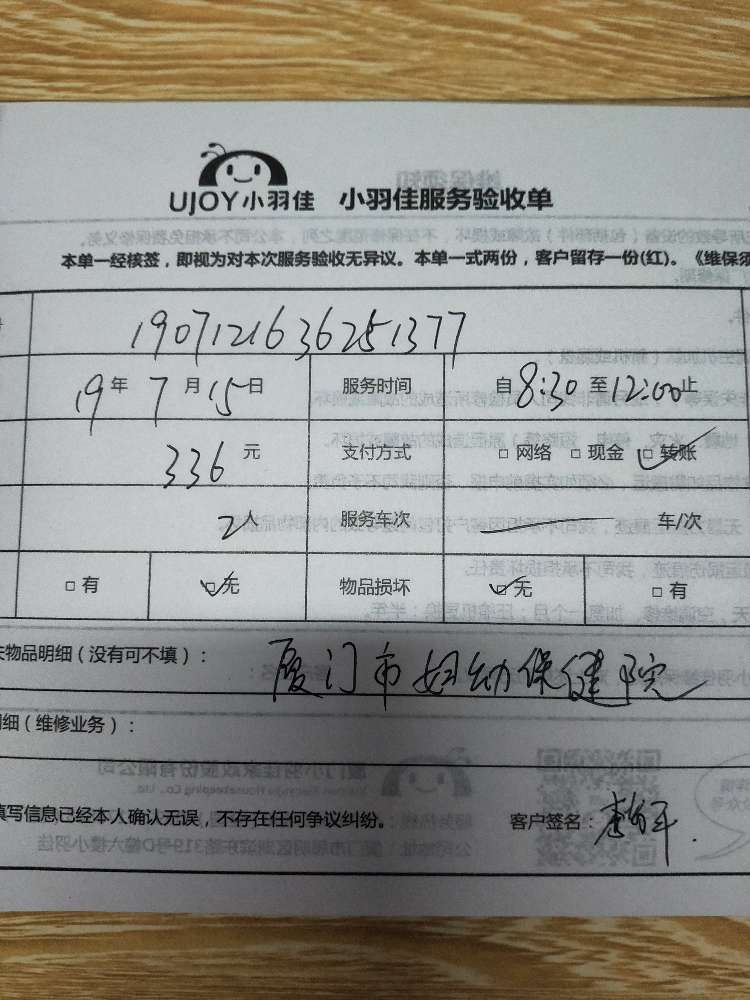 UJOY小羽佳 小羽佳服务验收单
本单一经核签，即视为对本次服务验收无异议。本单一式两份，客户留存一份(红)。《维保须
1907121636251377
19年7月15日 服务时间 自8:30至12:00止
336元 支付方式 □网络 □现金 ☑转账
2人 服务车次 —— 车/次
□有 ☑无 物品损坏 ☑无 □有
物品明细（没有可不填）： 厦门市妇幼保健院
细（维修业务）：
填写信息已经本人确认无误，不存在任何争议纠纷。 客户签名：